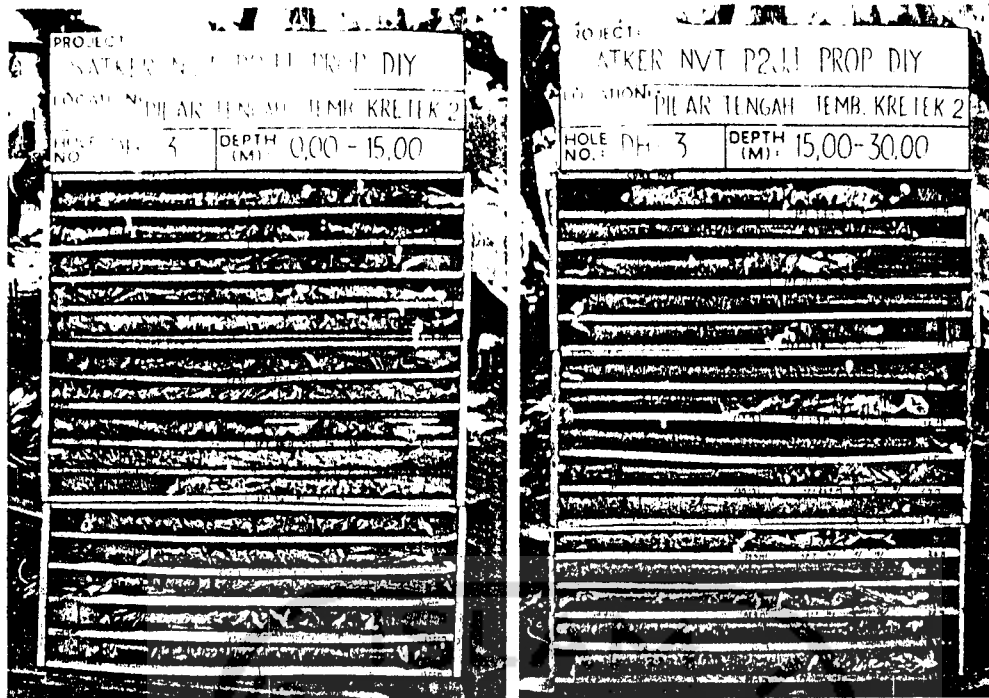 PROJECT:
SATKER NVT P2JJ PROP DIY
LOCATION: PILAR TENGAH JEMB. KRETEK 2
HOLE NO.: DH- 3 DEPTH (M): 0,00 - 15,00
PROJECT:
SATKER NVT P2JJ PROP DIY
LOCATION: PILAR TENGAH JEMB. KRETEK 2
HOLE NO.: DH- 3 DEPTH (M): 15,00-30,00
ISLAM